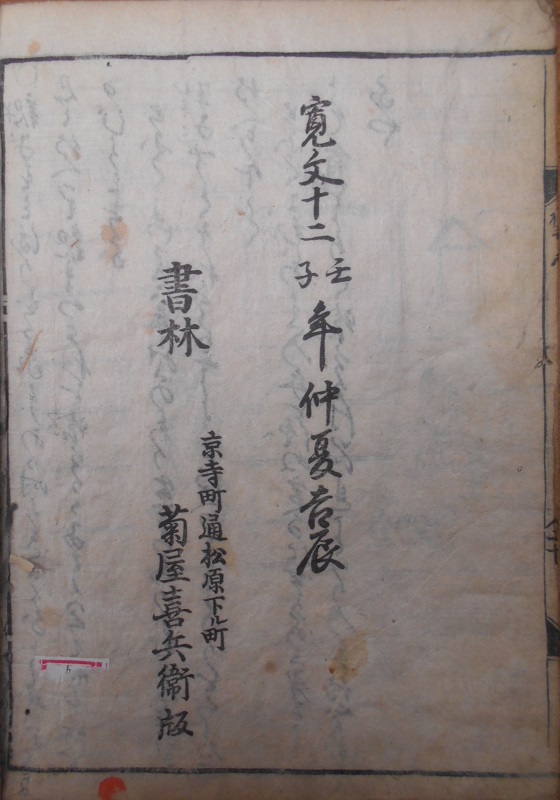 寛文十二壬子年仲夏吉辰
京寺町通松原下ル町
書林 菊屋喜兵衛版